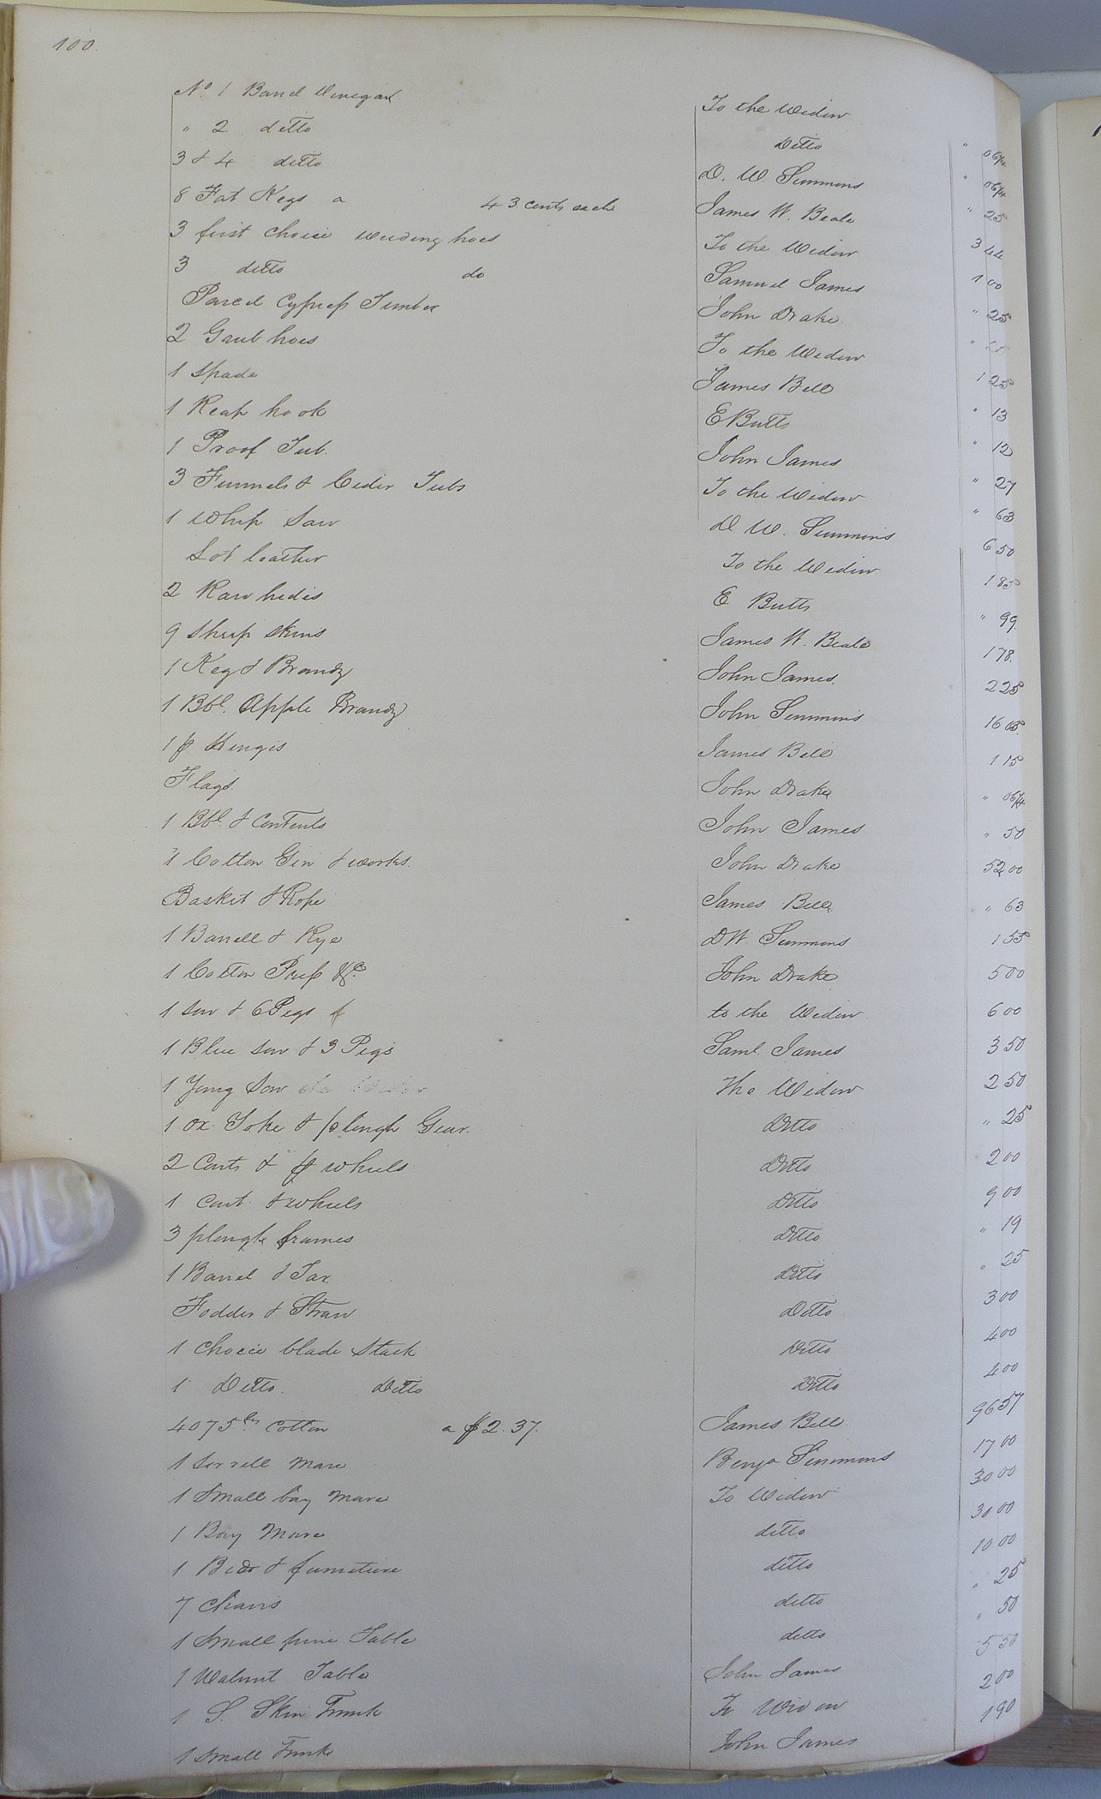 100
No. 1 Barrel Vinegar To the Widow " 06¼
" 2 ditto Ditto " 06¼
3 & 4 ditto D. W. Simmons " 25
8 Fat Kegs a 43 cents each James W. Beale 3 44
3 first choice weeding hoes To the Widow 1 00
3 ditto do Samuel James " 25
Parcel Cypress Timber John Drake "
2 Grub hoes To the Widow 1 25
1 Spade James Bell " 13
1 Reap hook E Butts " 12
1 Proof Tub. John James " 27
3 Funnels & Cider Tubs To the Widow " 63
1 Whip Saw D W. Simmons 6 50
Lot leather To the Widow 1 85
2 Raw hides E Butts " 99
9 Sheep Skins James W. Beale 1 78
1 Keg & Brandy John James. 2 25
1 Bbl. Apple Brandy John Simmons 16 05
1 p Hinges James Bell 1 15
Flags John Drake " 06¼
1 Bbl. & Contents John James " 50
1 Cotton Gin & works. John Drake 52 00
Basket & Rope James Bell " 63
1 Barrell & Rye D W Simmons 1 55
1 Cotton Press &c. John Drake 5 00
1 Sow & 6 Pigs to the Widow 6 00
1 Blue Sow & 3 Pigs Saml. James 3 50
1 Yong Sow The Widow 2 50
1 Ox Yoke & plough Gear. Ditto " 25
2 Carts & pr wheels Ditto 2 00
1 Cart & wheels Ditto 9 00
3 plough frames Ditto " 19
1 Barrel & Tar Ditto " 25
Fodder & Straw Ditto 3 00
1 Choice blade Stack Ditto 4 00
1 Ditto. Ditto Ditto 4 00
4075 lbs Cotton a $2.37. James Bell 96 57
1 Sorrell Mare Benja Simmons 17 00
1 Small bay Mare To Widow 30 00
1 Bay Mare ditto 30 00
1 Bed & furniture ditto 10 00
7 Chairs ditto " 25
1 Small pine Table ditto " 50
1 Walnut Table John James 5 50
1 S. Skin Trunk To Widow 2 00
1 Small Trunk John James 1 90